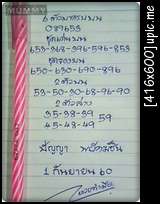 MUMMY
6 ตัวมาตรงบน
089653
ชุดเด่นบน
653-368-396-596-853
ชุดรองบน
650-630-690-896
2 ตัวบน
53-50-30-68-96-90
2 ตัวล่าง
35-38-39
45-48-49 59
ปัญญา พร้อมชื่น
1 กันยายน 60
[416x600] upic.me